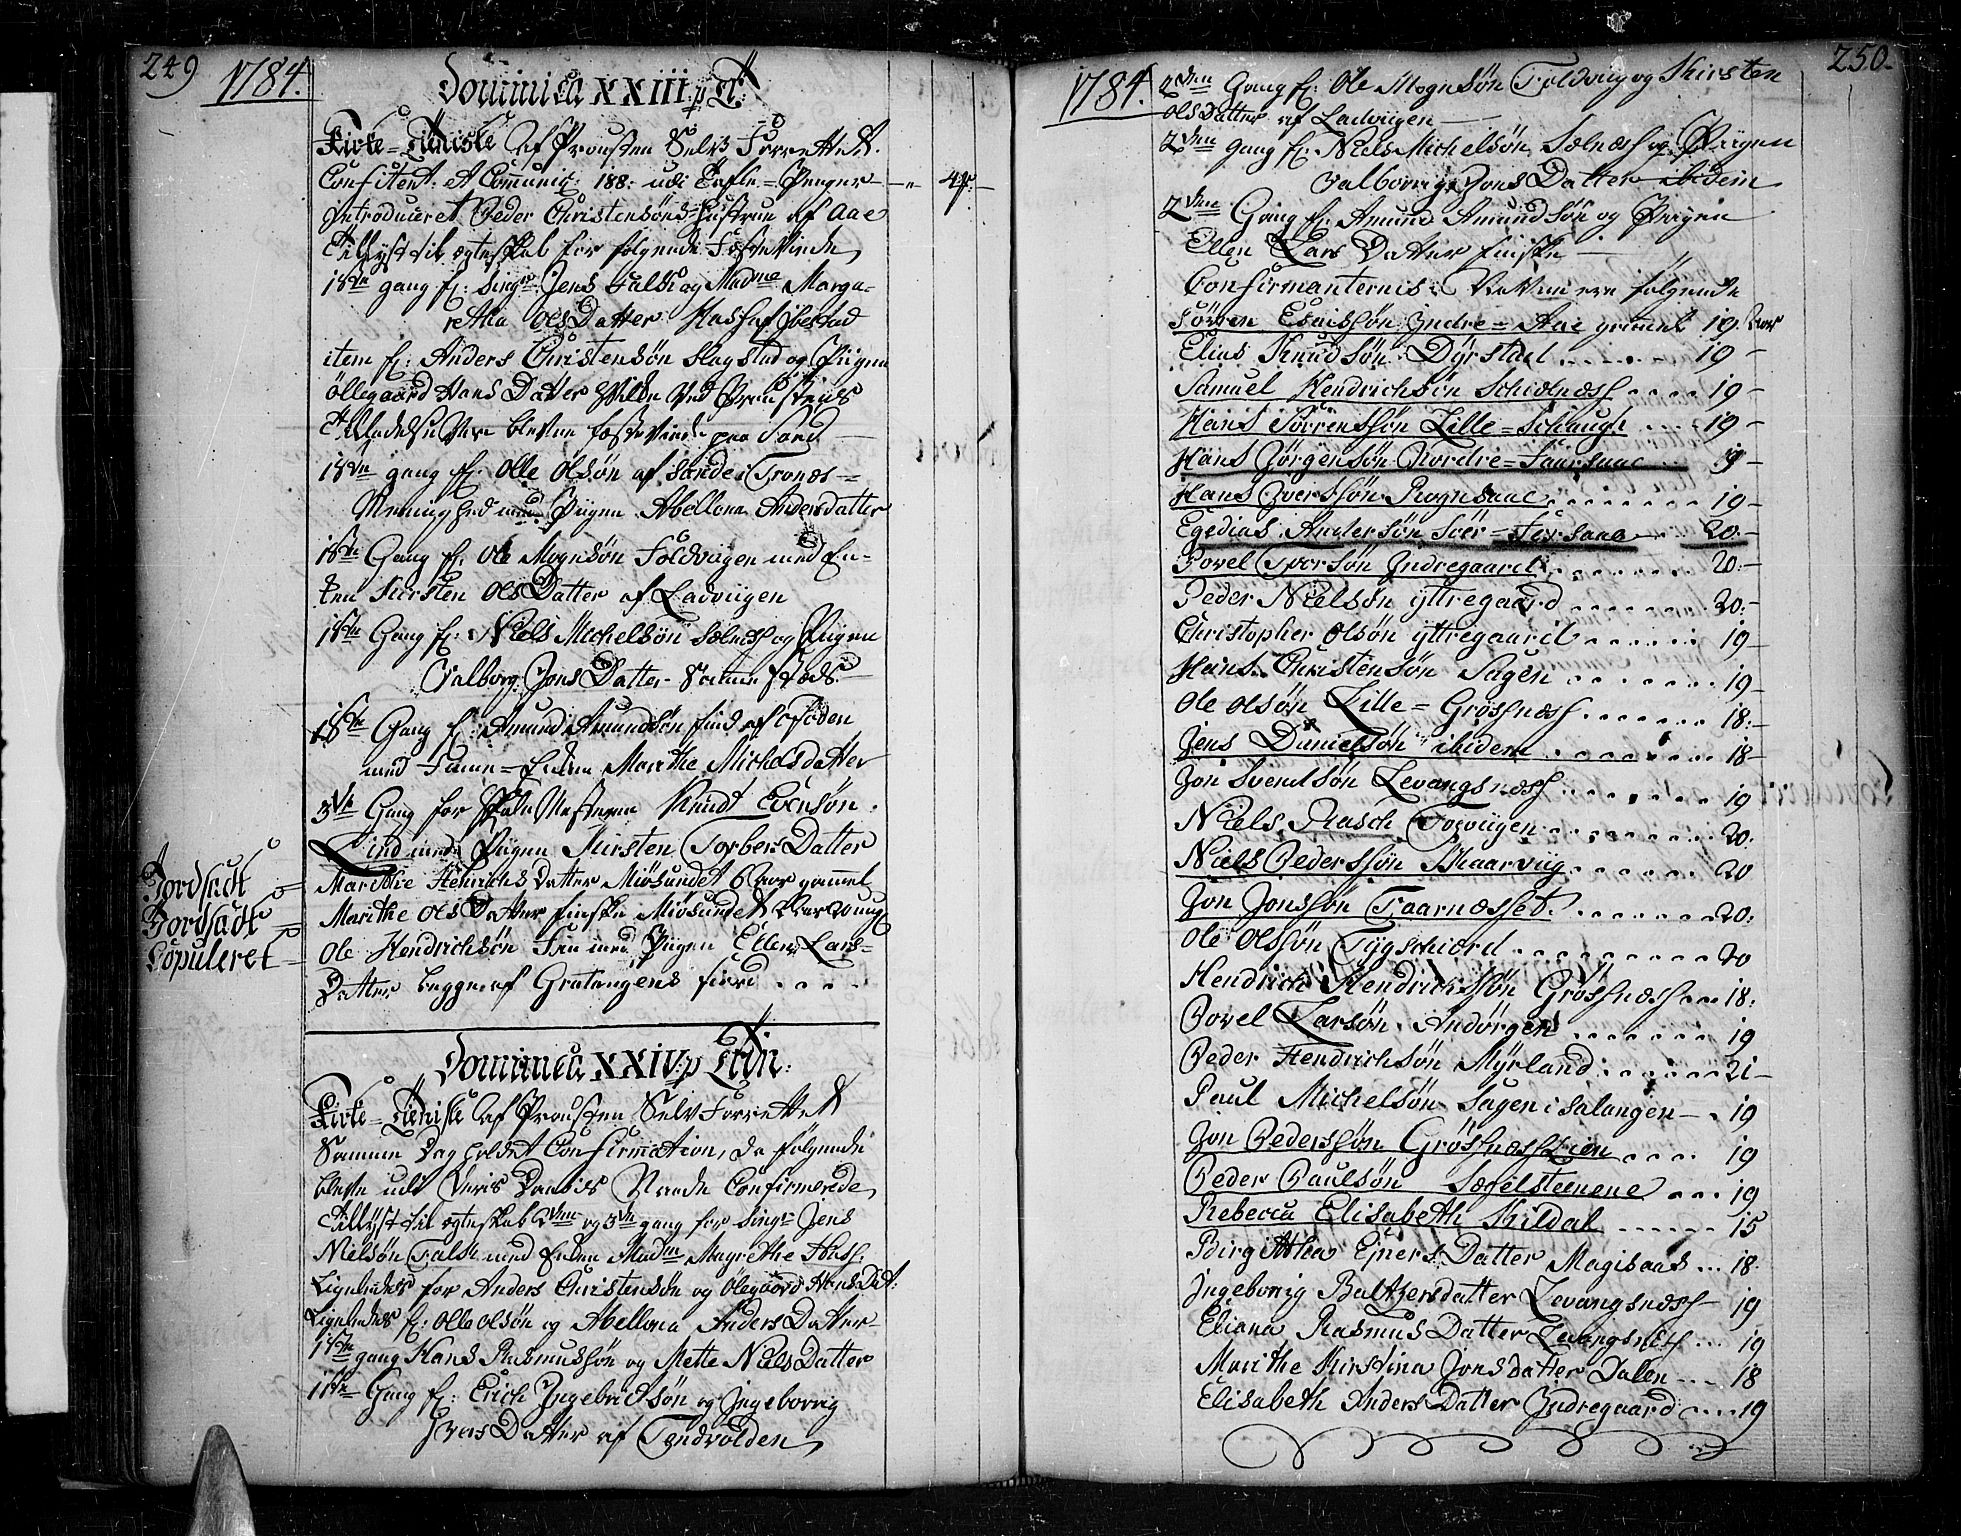 249
1784.
Dominica XXIII p T:
Kirke=Tieniste af Prousten Selv Forrettet.
Confitent. et Communic: 188. udi Tafle=Penger - - " 4
Introduceret Peder Christensøns Hustrue af Aae
Tillyst til ægteskab for følgende
1ste gang f: Sing:r Jens Falsk og Madme Marga=
retha OlsDatter Hass af Ibestad
item f: Anders Christensøn Hagstad og Piigen
Øllegaard Hans Datter
Tilladelse bleven
1ste gang f: Olle Olsøn af Sandes Tronæs=
Menighed med Piigen Abellona Andersdatter
1ste Gang f: Ole Mognsøn Foldviigen med En=
ken Kirsten OlsDatter af Ladviigen
1ste Gang f: Niels Michelsøn og Piigen
Valborg JonsDatter Samme Steds
1ste Gang f: Amund Amundsøn find af
med Enken Marithe Michelsdatter
3die Gang for Knudt Evensøn
Lind med Piigen Kirsten TorbersDatter
Jordsadt = Marithe Henrichsdatter Miøsundet 6 aar gammel
Jordsadt = Marithe OlsDatter finske Miøsundet
Copuleret = Ole Hendrichsøn Fin med Piigen Ellen Lars=
Datter begge af Gratangens fiord . . . .
Dominica XXIV p Trin:
Kirke=Tieniste af Prousten Selv Forrettet
Samme Dag holdet Confirmation, da følgende
bleve udi deris Daabes Naade Confirmerede
Tillyst til ægteskab 2den og 3die gang for Sing:r Jens
Nielsøn Falsk med Enken Mad:me Magrethe Hass
Ligeledes for Anders Christensøn og Ølegaard HansDat:
Ligeledes f: Olle Olsøn og Abellona AndersDatter
1ste gang Hans Rasmussøn og Mette NielsDatter
1ste Gang f: Erich Ingebrichtsøn og Ingeborrig
IversDatter af Tendvolden
250.
1784.
2den Gang f: Ole Mognsøn Foldviig og Kirsten
OlsDatter af Ladviigen
2den Gang f: Niels Michelsøn og Piigen
Valborrig JonsDatter ibidem
2den Gang f: Amund Amundsøn og Piigen
Ellen LarsDatter finske
Confirmanternis Navne ere følgende
Sørren Esaissøn Indre=Aae gammel 19 Aar
Elias Knudsøn Dyrstad . . . . . 19 -
Samuel Hendrichsøn Schiølnæss . . . . 19 -
Hans Sørrensøn Lille=Schaugh . . . . 19 -
Hans Jørgensøn Nordre=Faarsaae . . 19 -
Hans Iverssøn Rognsaae . . . . . . . 19 -
Egedias Andersøn Søer=Forsaae . . 20 -
Povel Iversøn Indregaard . . . . . . . 20 -
Peder Nielsøn Yttregaard . . . . . . . 20 -
Christopher Olsøn Yttregaard . . . . . . 19 -
Hans Christensøn Sagen . . . . . . . 19 -
Ole Olsøn Lille=Grøssnæss . . . . . . . 18 -
Jens Danielsøn ibidem . . . . . . . 18 -
Jon Svendsøn Levangsnæss . . . . . . . 19
Niels Rasch Torviigen . . . . . . . . 20.
Niels Pederssøn Skaarviig . . . . . . . 20
Jon Jonssøn Taarnæsset . . . . . . . . 20.
Ole Olssøn Tygschiord . . . . . . . . . . 20
Hendrich Hendrichsøn Grøssnæss . . . 18.
Povel Larsøn Andørgen . . . . . . . . 19
Peder Hendrichsøn Myrland . . . . . . 21 -
Paul Michelsøn Sagen i Salangen - . 19
Jon Pederssøn Grøssnæss Eien . . . . 19
Peder Paulsøn Sæeelsteenene . . . 19
Rebecca Elisabeth Kildal . . . . . . 15
Birgittha EjnersDatter Magisaas . . . 18.
Ingeborrig Baltzersdatter Levangsnæss - 19
Eliana RasmusDatter Levangsnæss . . . 19
Marithe Kirstina Jonsdatter Dalen . . . 18
Elisabeth AndersDatter Indregaard . . . . 19